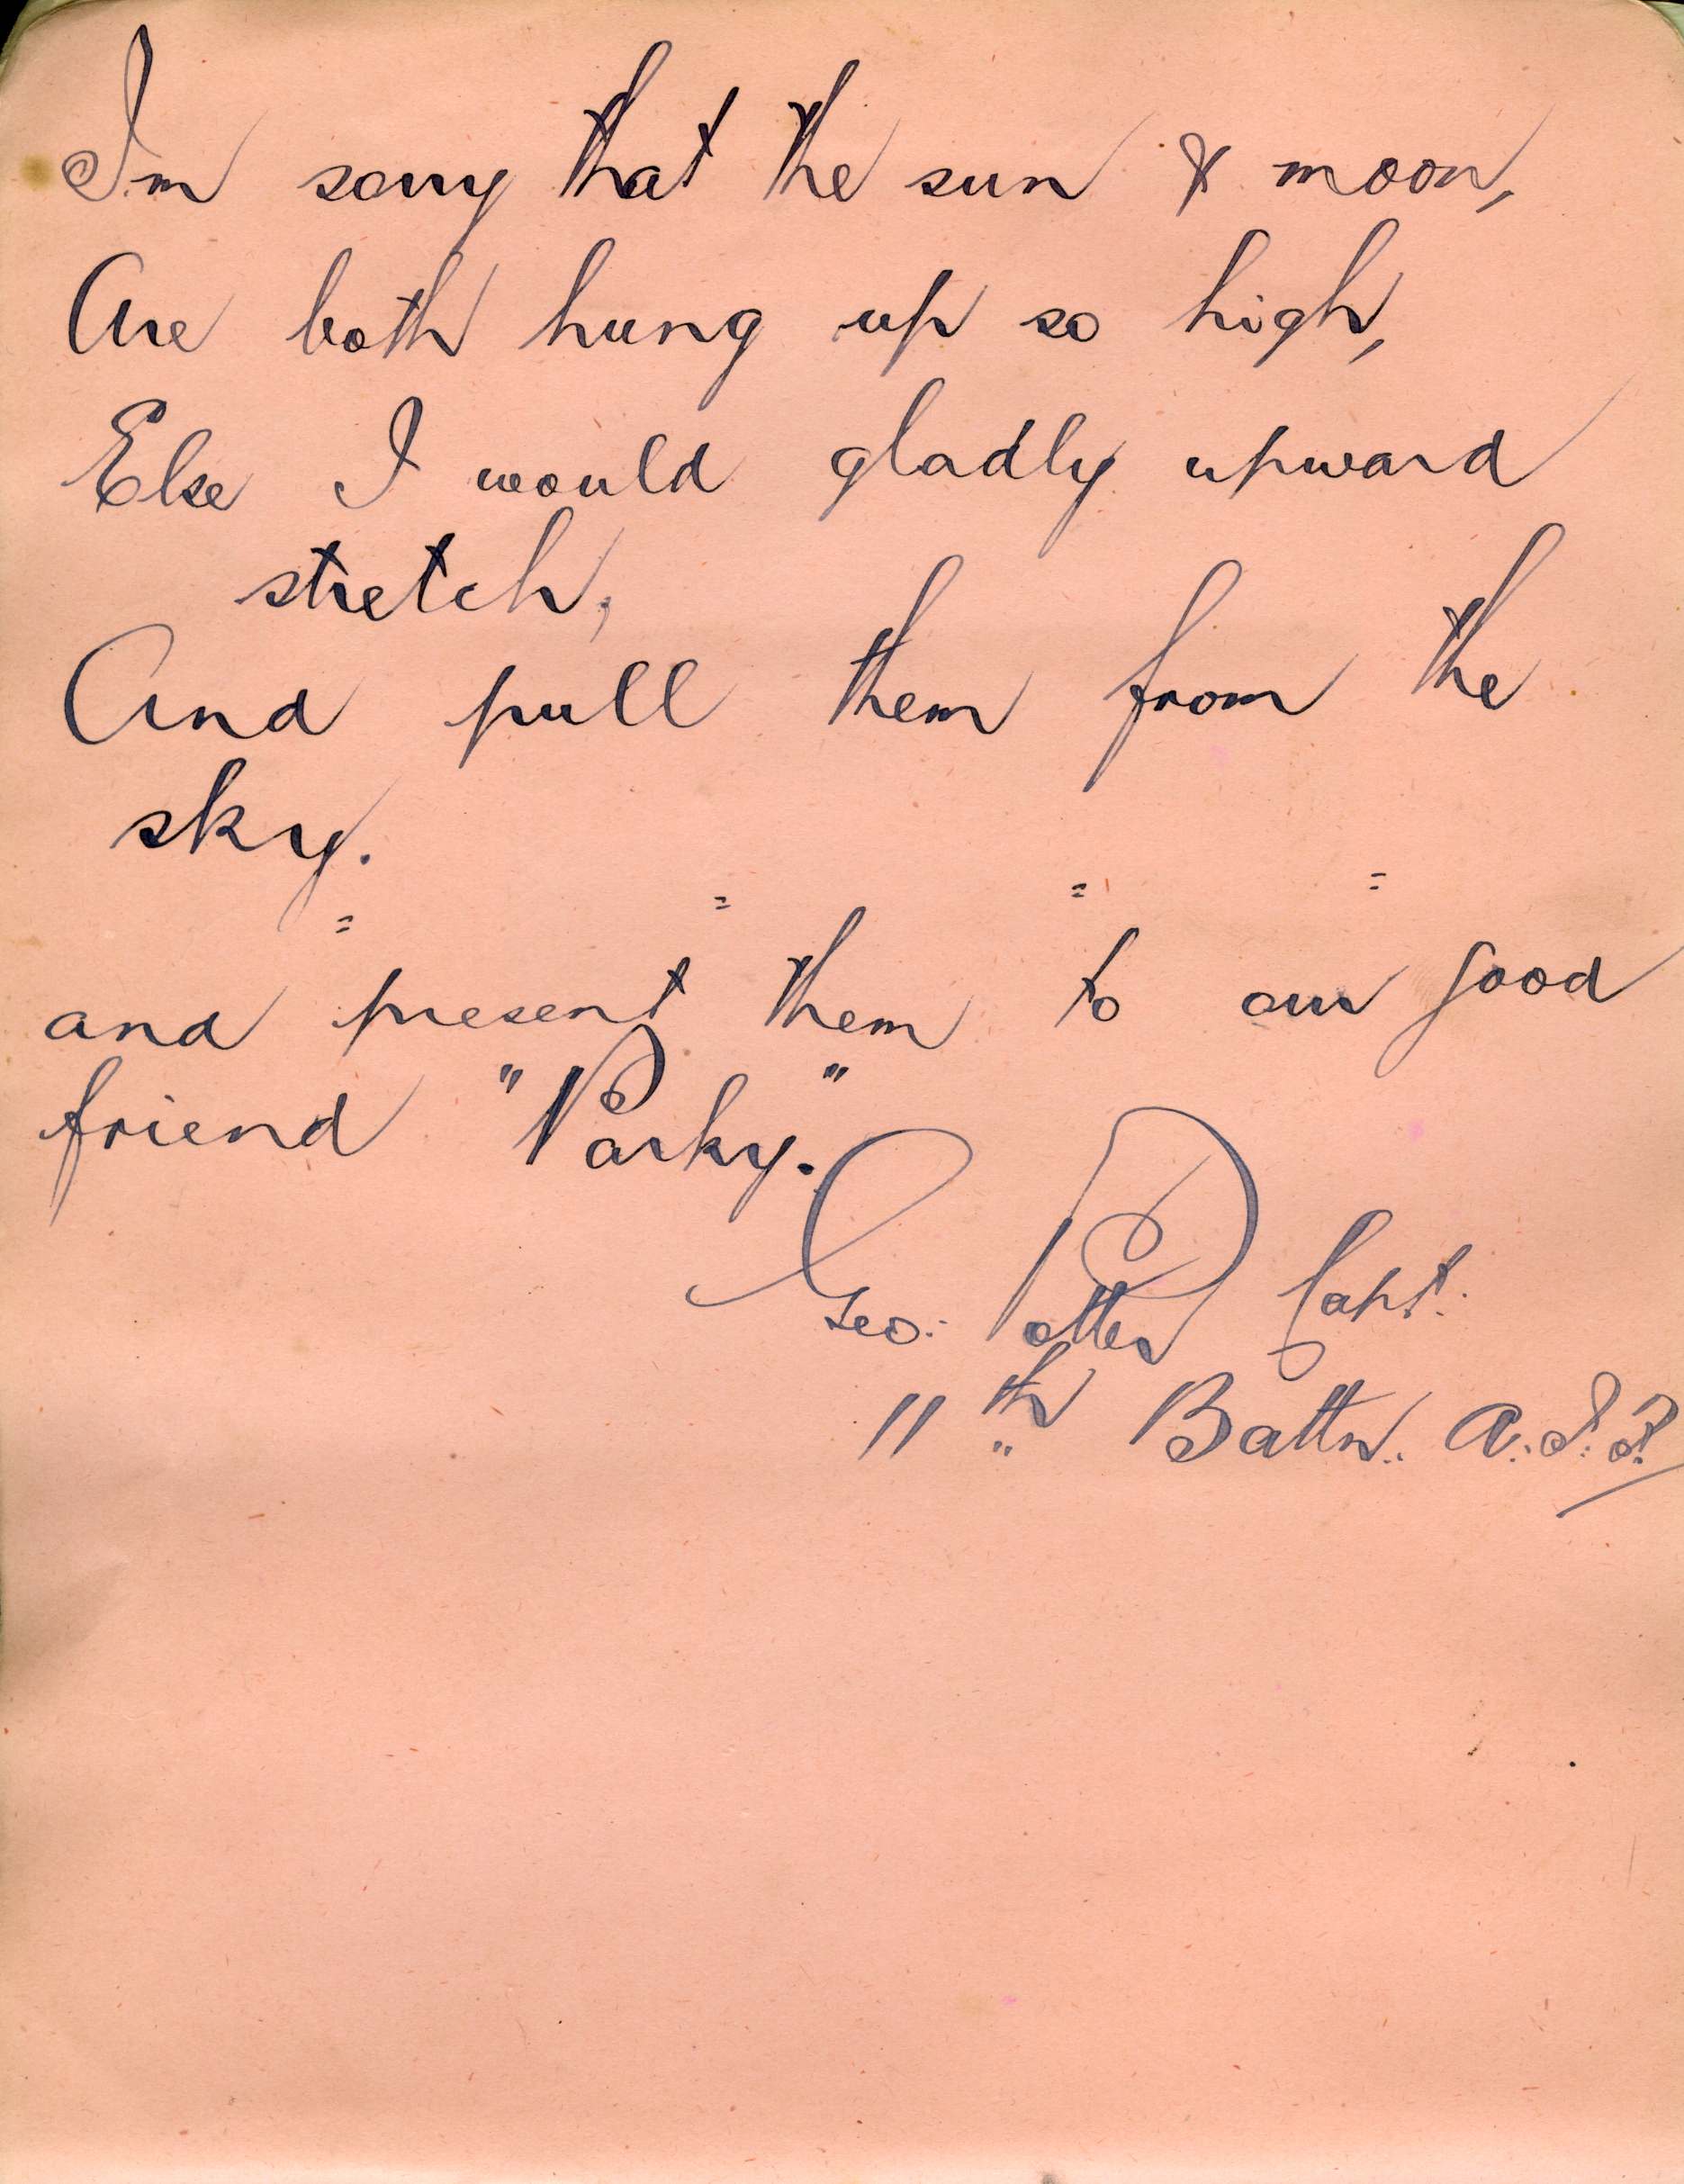 I'm sorry that the sun & moon,
Are both hung up so high,
Else I would gladly upward
stretch,
And pull them from the
sky.
= = = =
and present them to our good
friend "Parky."
Geo: Potter Capt.
11th Battn. A.I.F.